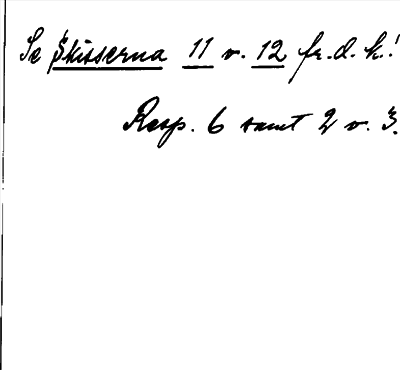 Se Skisserna 11 v. 12 fr. d. k.!
Resp. 6 samt 2 v. 3.